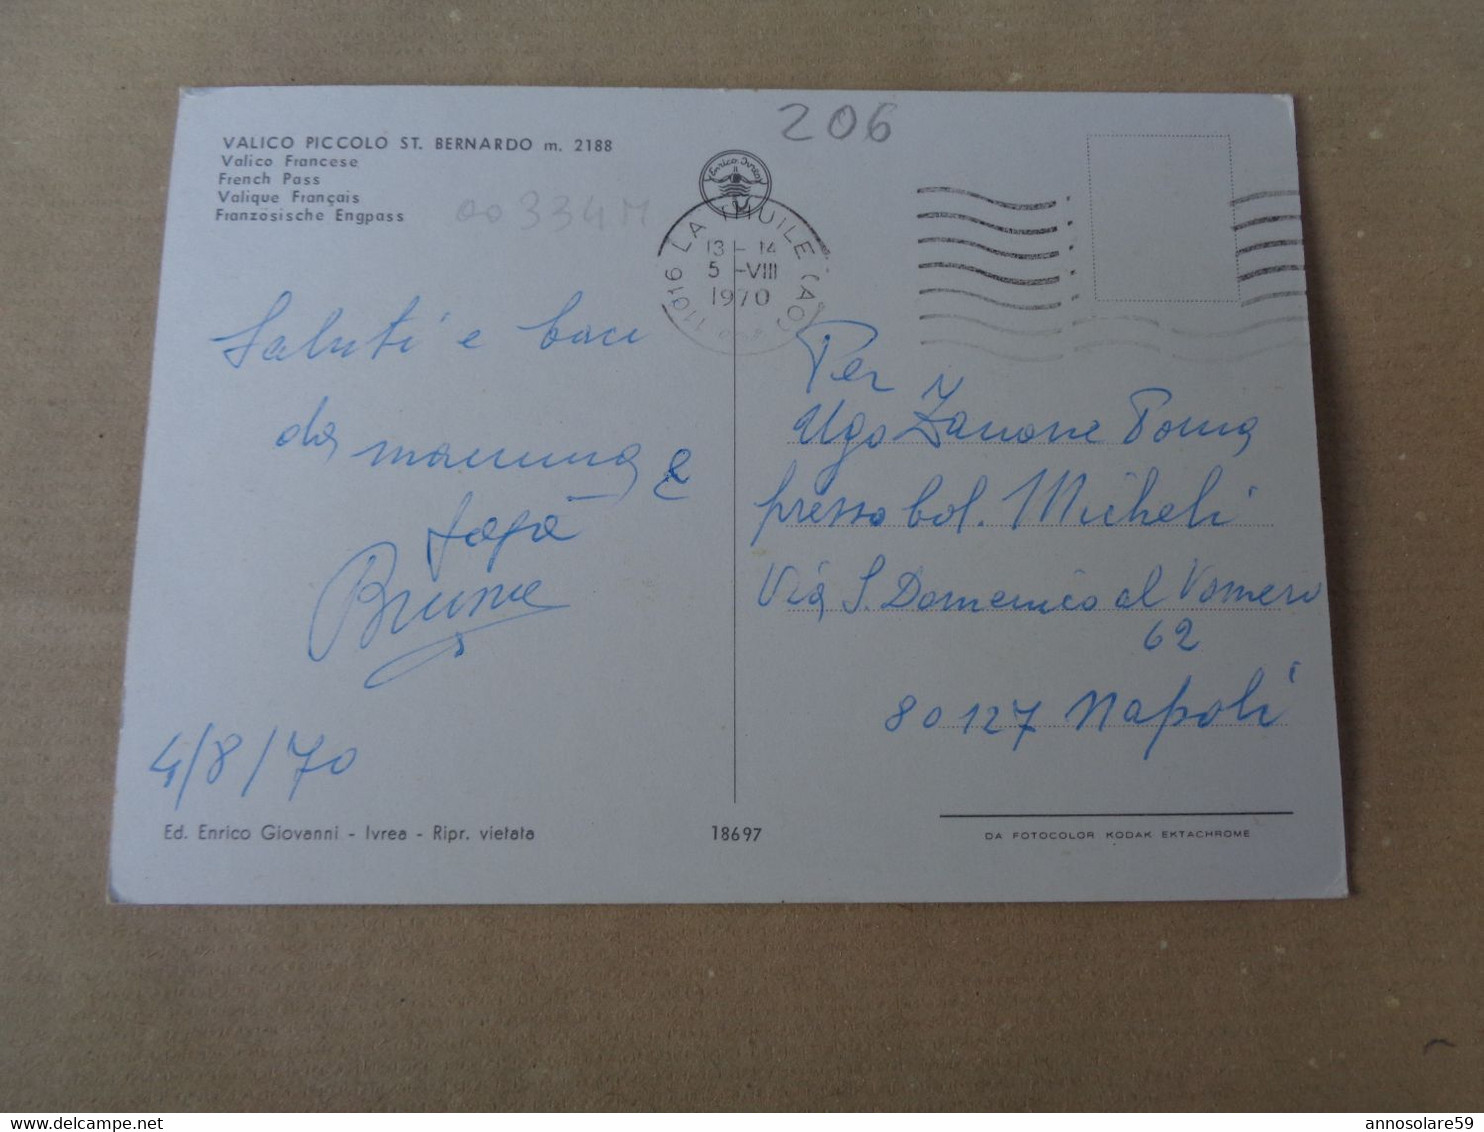 206
VALICO PICCOLO ST. BERNARDO m. 2188
Valico Francese
French Pass
Valique Français
Französische Engpass
00334M
Enrico Ivrea
11016 LA THUILE (AO)
13 - 14
5 -VIII
1970
Saluti e baci
da mamma e
papà
Bruno
4/8/70
Per
Ugo Zanone Poma
presso col. Micheli
Via S. Domenico al Vomero
62
80127 Napoli
Ed. Enrico Giovanni - Ivrea - Ripr. vietata
18697
DA FOTOCOLOR KODAK EKTACHROME
delcampe.net
annosolare59